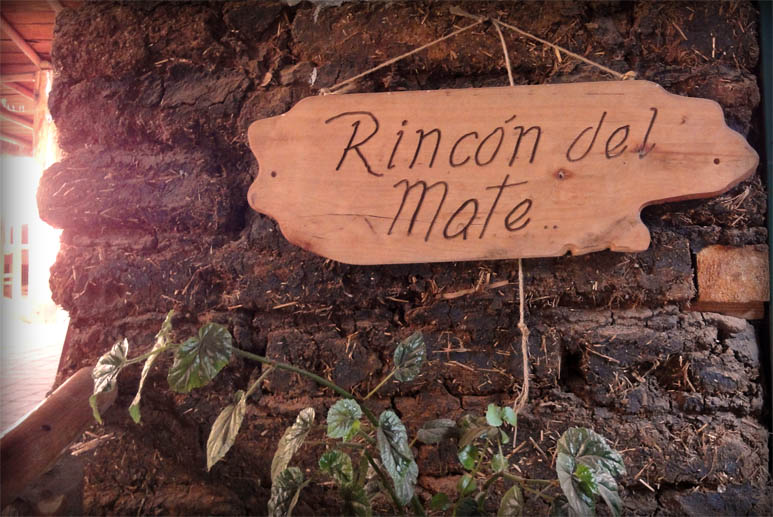 Rincón del
Mate..